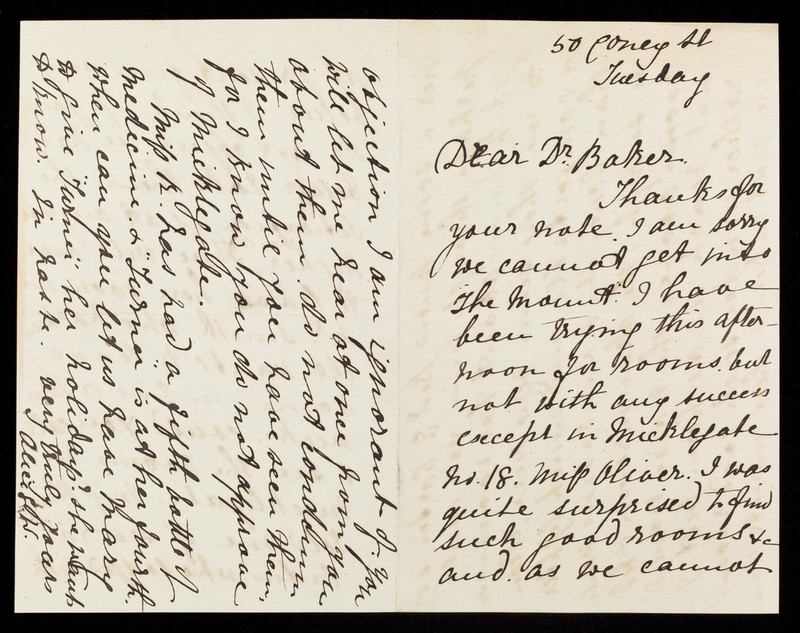 50 Coney St
Tuesday
Dear Dr. Baker.
Thanks for
your note. I am sorry
we cannot get into
The Mount. I have
been trying this after-
noon for rooms. but
not with any success
except in Micklegate
No. 18. Miss Oliver. I was
quite surprised to find
such good rooms &c
and. as we cannot
objection I am ignorant of. You
will let me hear at once from you
about them. do not condemn
them until you have seen them.
for I know you do not approve
of Micklegate.
Miss R. has had a fifth bottle of
Medicine. & Turner is at her fourth.
When can you let us have Mary
to give "Turner" her holiday? she wants
to know. In haste. very truly yours